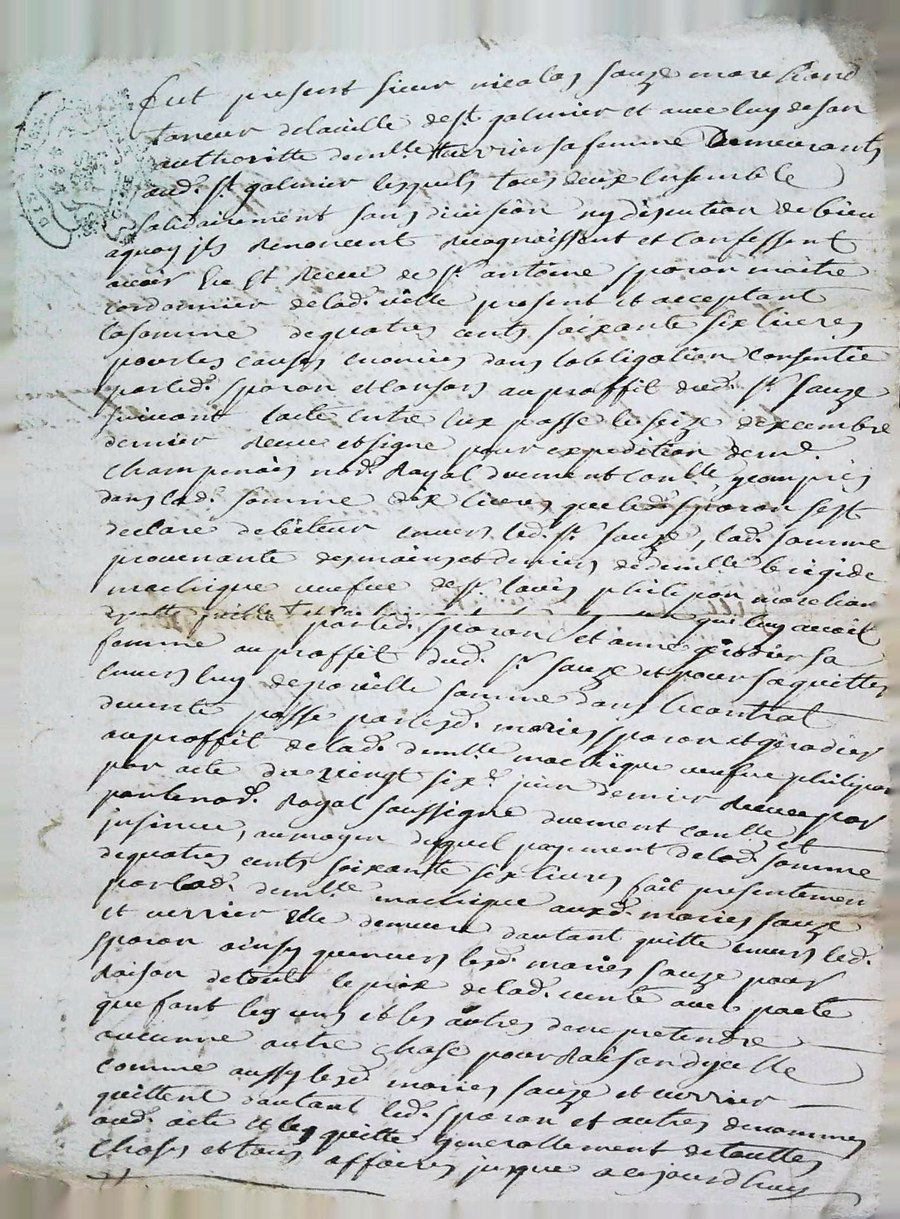 fut present sieur nicolas sauze marchand
taneur delaville de st. galmier et avec luy de son
authoritte demlle. verrier sa femme Demeurants
aud. st. galmier lesquels tous deux Ensemble
solidairement sans division ny discution de bien
aquoy ils Renoncent Recognoissent et Confessent
avoir Eu et Receu de sr. antoine sporon maitre
cordonnier de lad. ville present et acceptant
la somme de quatre cents soixante six livres
pour les causes enoncées dans lobligation Consentie
par led. sporon et consors au proffit dud. sr. sauze
suivant lacte entre Eux passé le seize dexcembre
dernier Receu et signé pour expedition de me.
Champenois nore. Royal duement Conllé, y compris
dans lad. somme dix livres que led. sporon sest
declaré debiteur envers led. sr. sauze, lad. somme
provenante des mains et deniers de demlle. brigide
machique veufve de sr. louis philipon marchan
par led. sporon et anne girodier sa qui luy avoit
femme au proffit dud. sr. sauze et pour sacquitter
envers luy de pareille somme dans le contrat
de vente passé par lesd. mariés sporon et girodier
au proffit de lad. demlle. machique veufve philipon
par acte du vingt sixe. juin dernier Receu par
par le nore. Royal soussigné duement conllé et
insinué, au moyen duquel payement de lad. somme
de quatre cents soixante six livres fait presentement
par lad. demlle. machique auxd. mariés sauze
et verrier Elle demeure dautant quitte envers led.
sporon ainsy quenvers lesd. mariés sauze pour
Raison de tout le prix de lad. vente avec pacte
que font les uns et les autres de ne pretendre
aucunne autre chose pour Raison dycelle
comme aussy lesd. mariés sauze et verrier
quittent dautant led. sporon et autres denommés
aud. acte et les quitte generallement de touttes
choses et tous affaires jusque a cejourdhuy